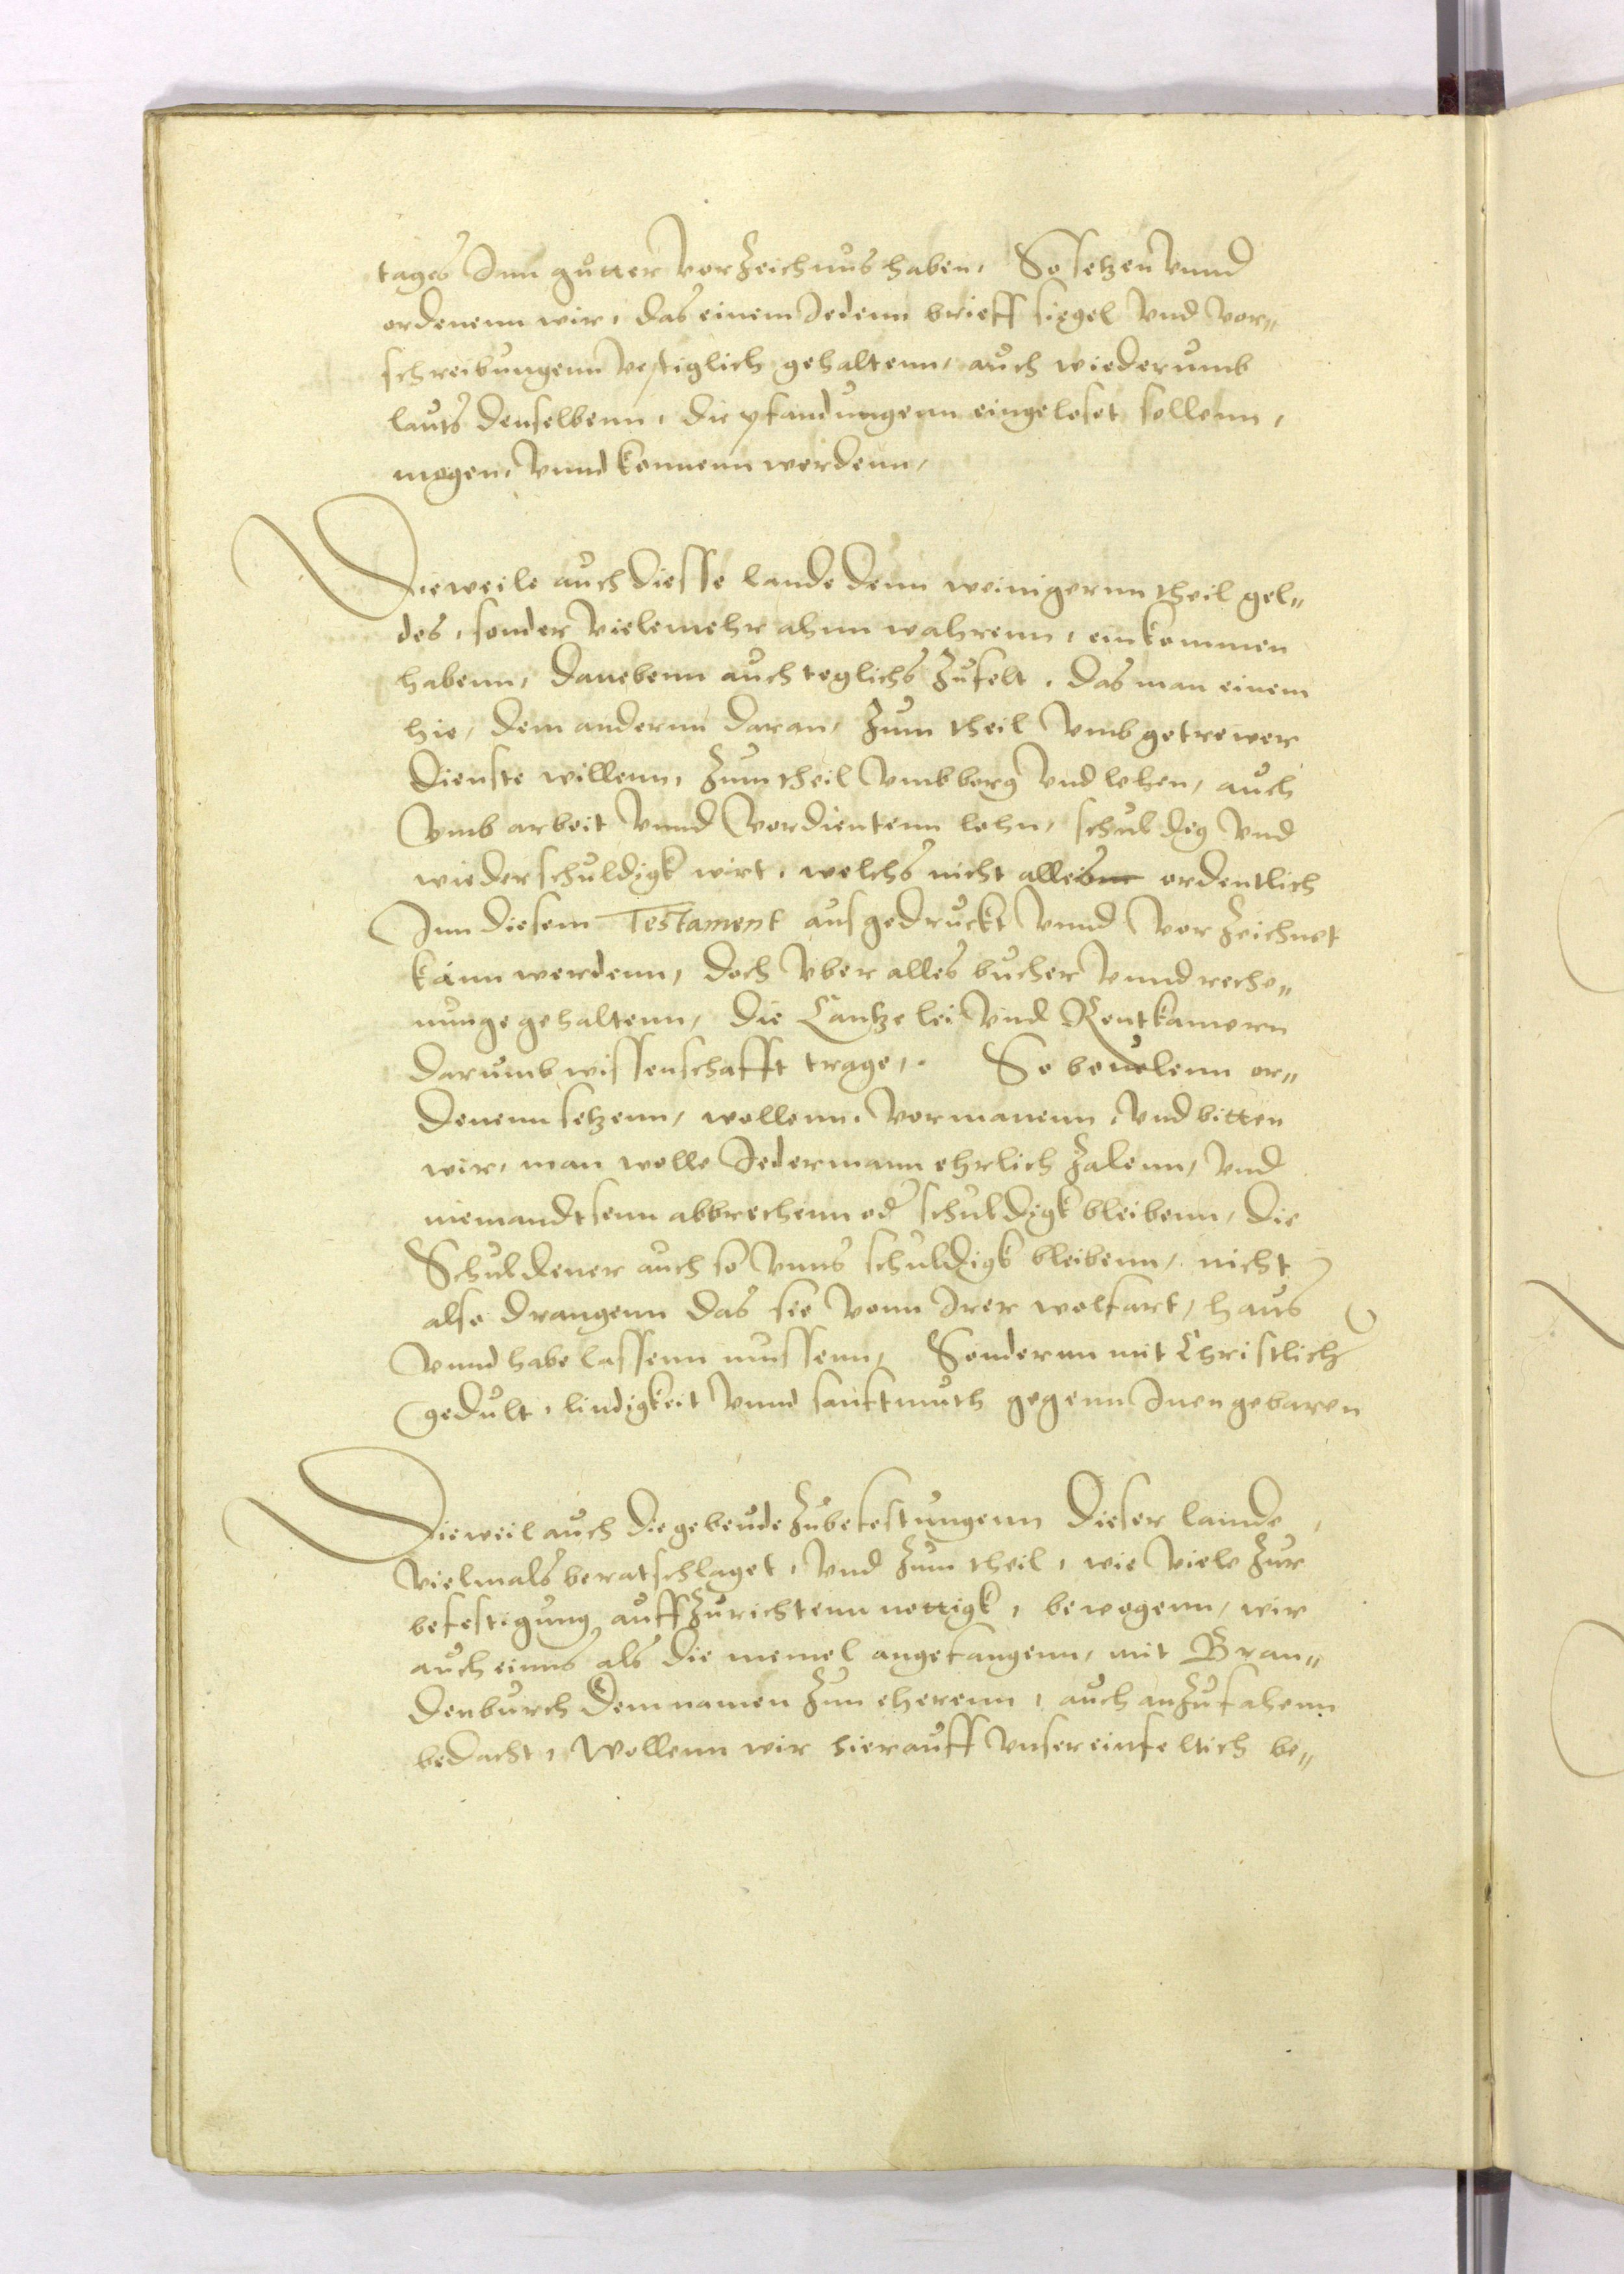 tages Inn gutter vorzeichnus haben, So setzen vnnd
ordenenn wir, das einem Jedenn brieff siegel vnd vor„
schreibungenn vestiglich gehaltenn, auch wiederumb
lauts denselbenn, die pfandungenn eingeloset sollenn,
mogen, vnnd konnenn werdenn,
Dieweile auch diesse lande denn weinigernn theil gel„
des, sonder vielemehr ahnn wahrenn, einkommen
habenn, danebenn auch teglichs zufelt, das man einem
hie, dem andernn daran, zum theil vmb getrewer
dienste willenn, zum theil vmb borg vnd lehen, auch
vmb arbeit vnnd vordientenn lohn, schuldig vnd
wiederschuldigk wirt, welchs nicht alles ordentlich
Inn diesem Testament ausgedruckt vnnd vorzeichnet
kann werdenn, doch vber alles bucher vnnd reche„
nunge gehaltenn, die Cantzelei vnd Rentkamern
darumb wissenschafft trage,. So beuelenn or„
denenn setzenn, wollenn, vormanenn, vnd bitten
wir, man wolle Jedermann ehrlich zalenn, vnd
niemandtsenn abbrechenn oder schuldigk bleibenn, die
Schuldener auch so vnns schuldigk bleibenn, nicht
also drangenn das sie vonn Irer wolfart, haus
vnnd habe lassenn mussenn, Sondernn mit Christlich
gedult, lindigkeit vnnd sanftmuth gegenn Inen gebaren
Dieweil auch die gebeude zubefestungenn dieser lande,
vielmals beratschlaget, vnd zum theil, wie viele zur
befestigung auffzurichtenn nottigk, bewogenn, wir
auch einns als die memel angefangenn, mit Bran„
denburch dem namen zun eherenn, auch anzufahenn
bedacht, Wollenn wir hierauff vnser einfeltich be„